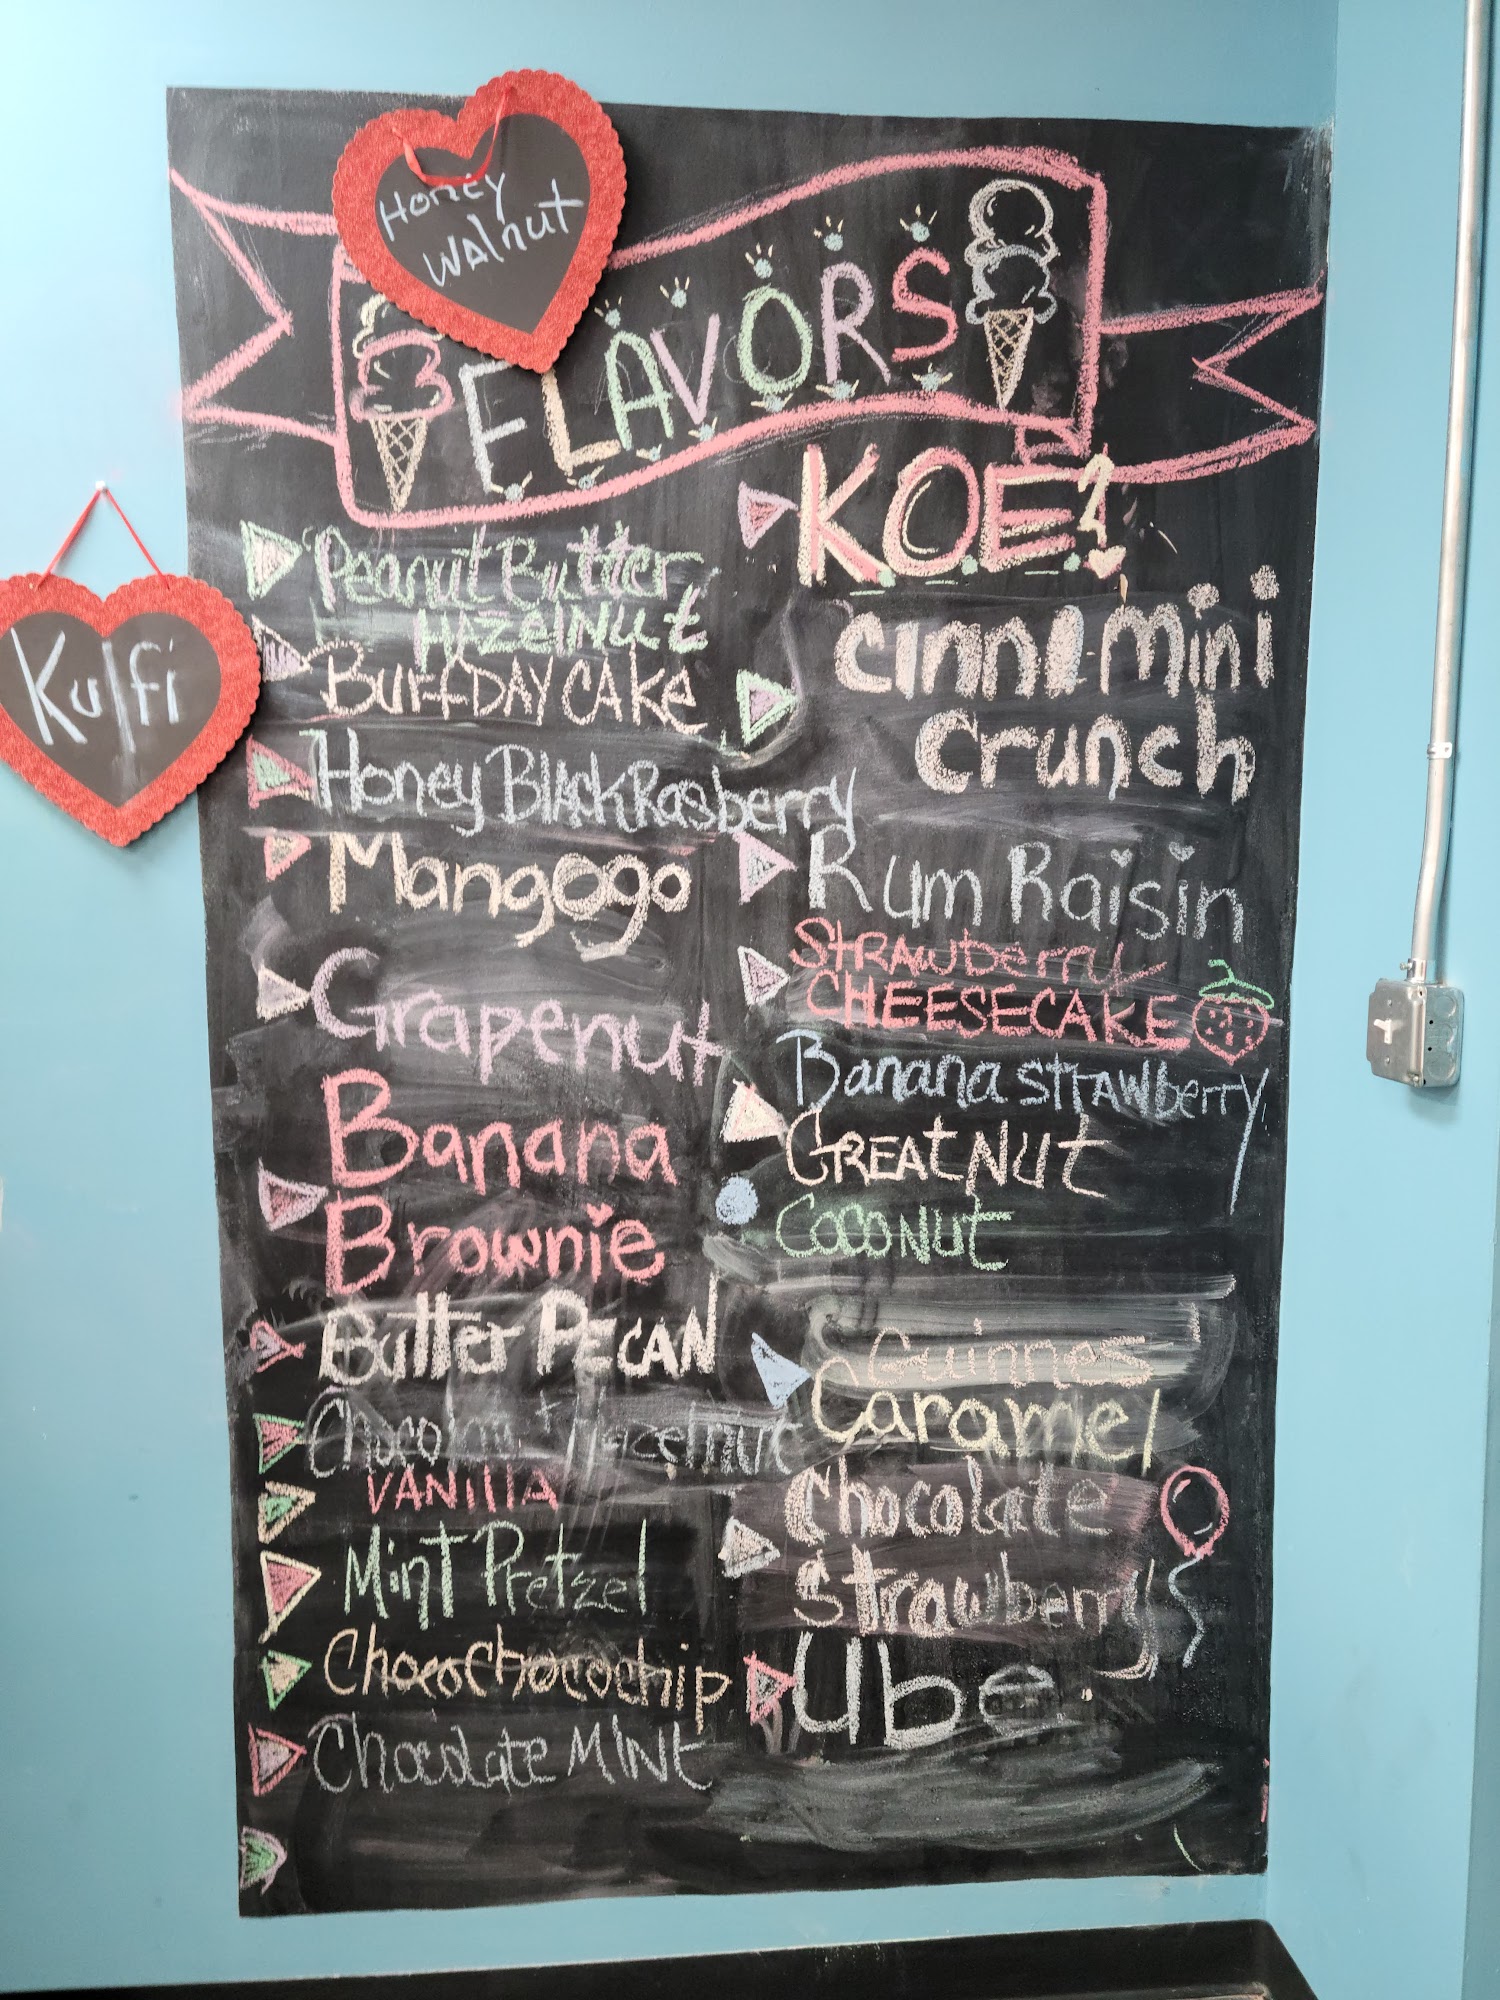 Honey
Walnut
Kulfi
FLAVORS
Peanut Butter
HAZElNUt
BUFFDAY CAKe
Honey BlAckRasberry
Mangogo
Grapenut
Banana
Brownie
Butter PECAN
VANIllA
Mint Pretzel
Chocochocochip
Chocolate MINt
KOE?
cinnamini
crunch
Rum Raisin
StRAWberry
CHEESECAKE
Banana StRAWberry
GREAtNUt
COCONUt
Guinness
Caramel
Chocolate
Strawberry
Ube